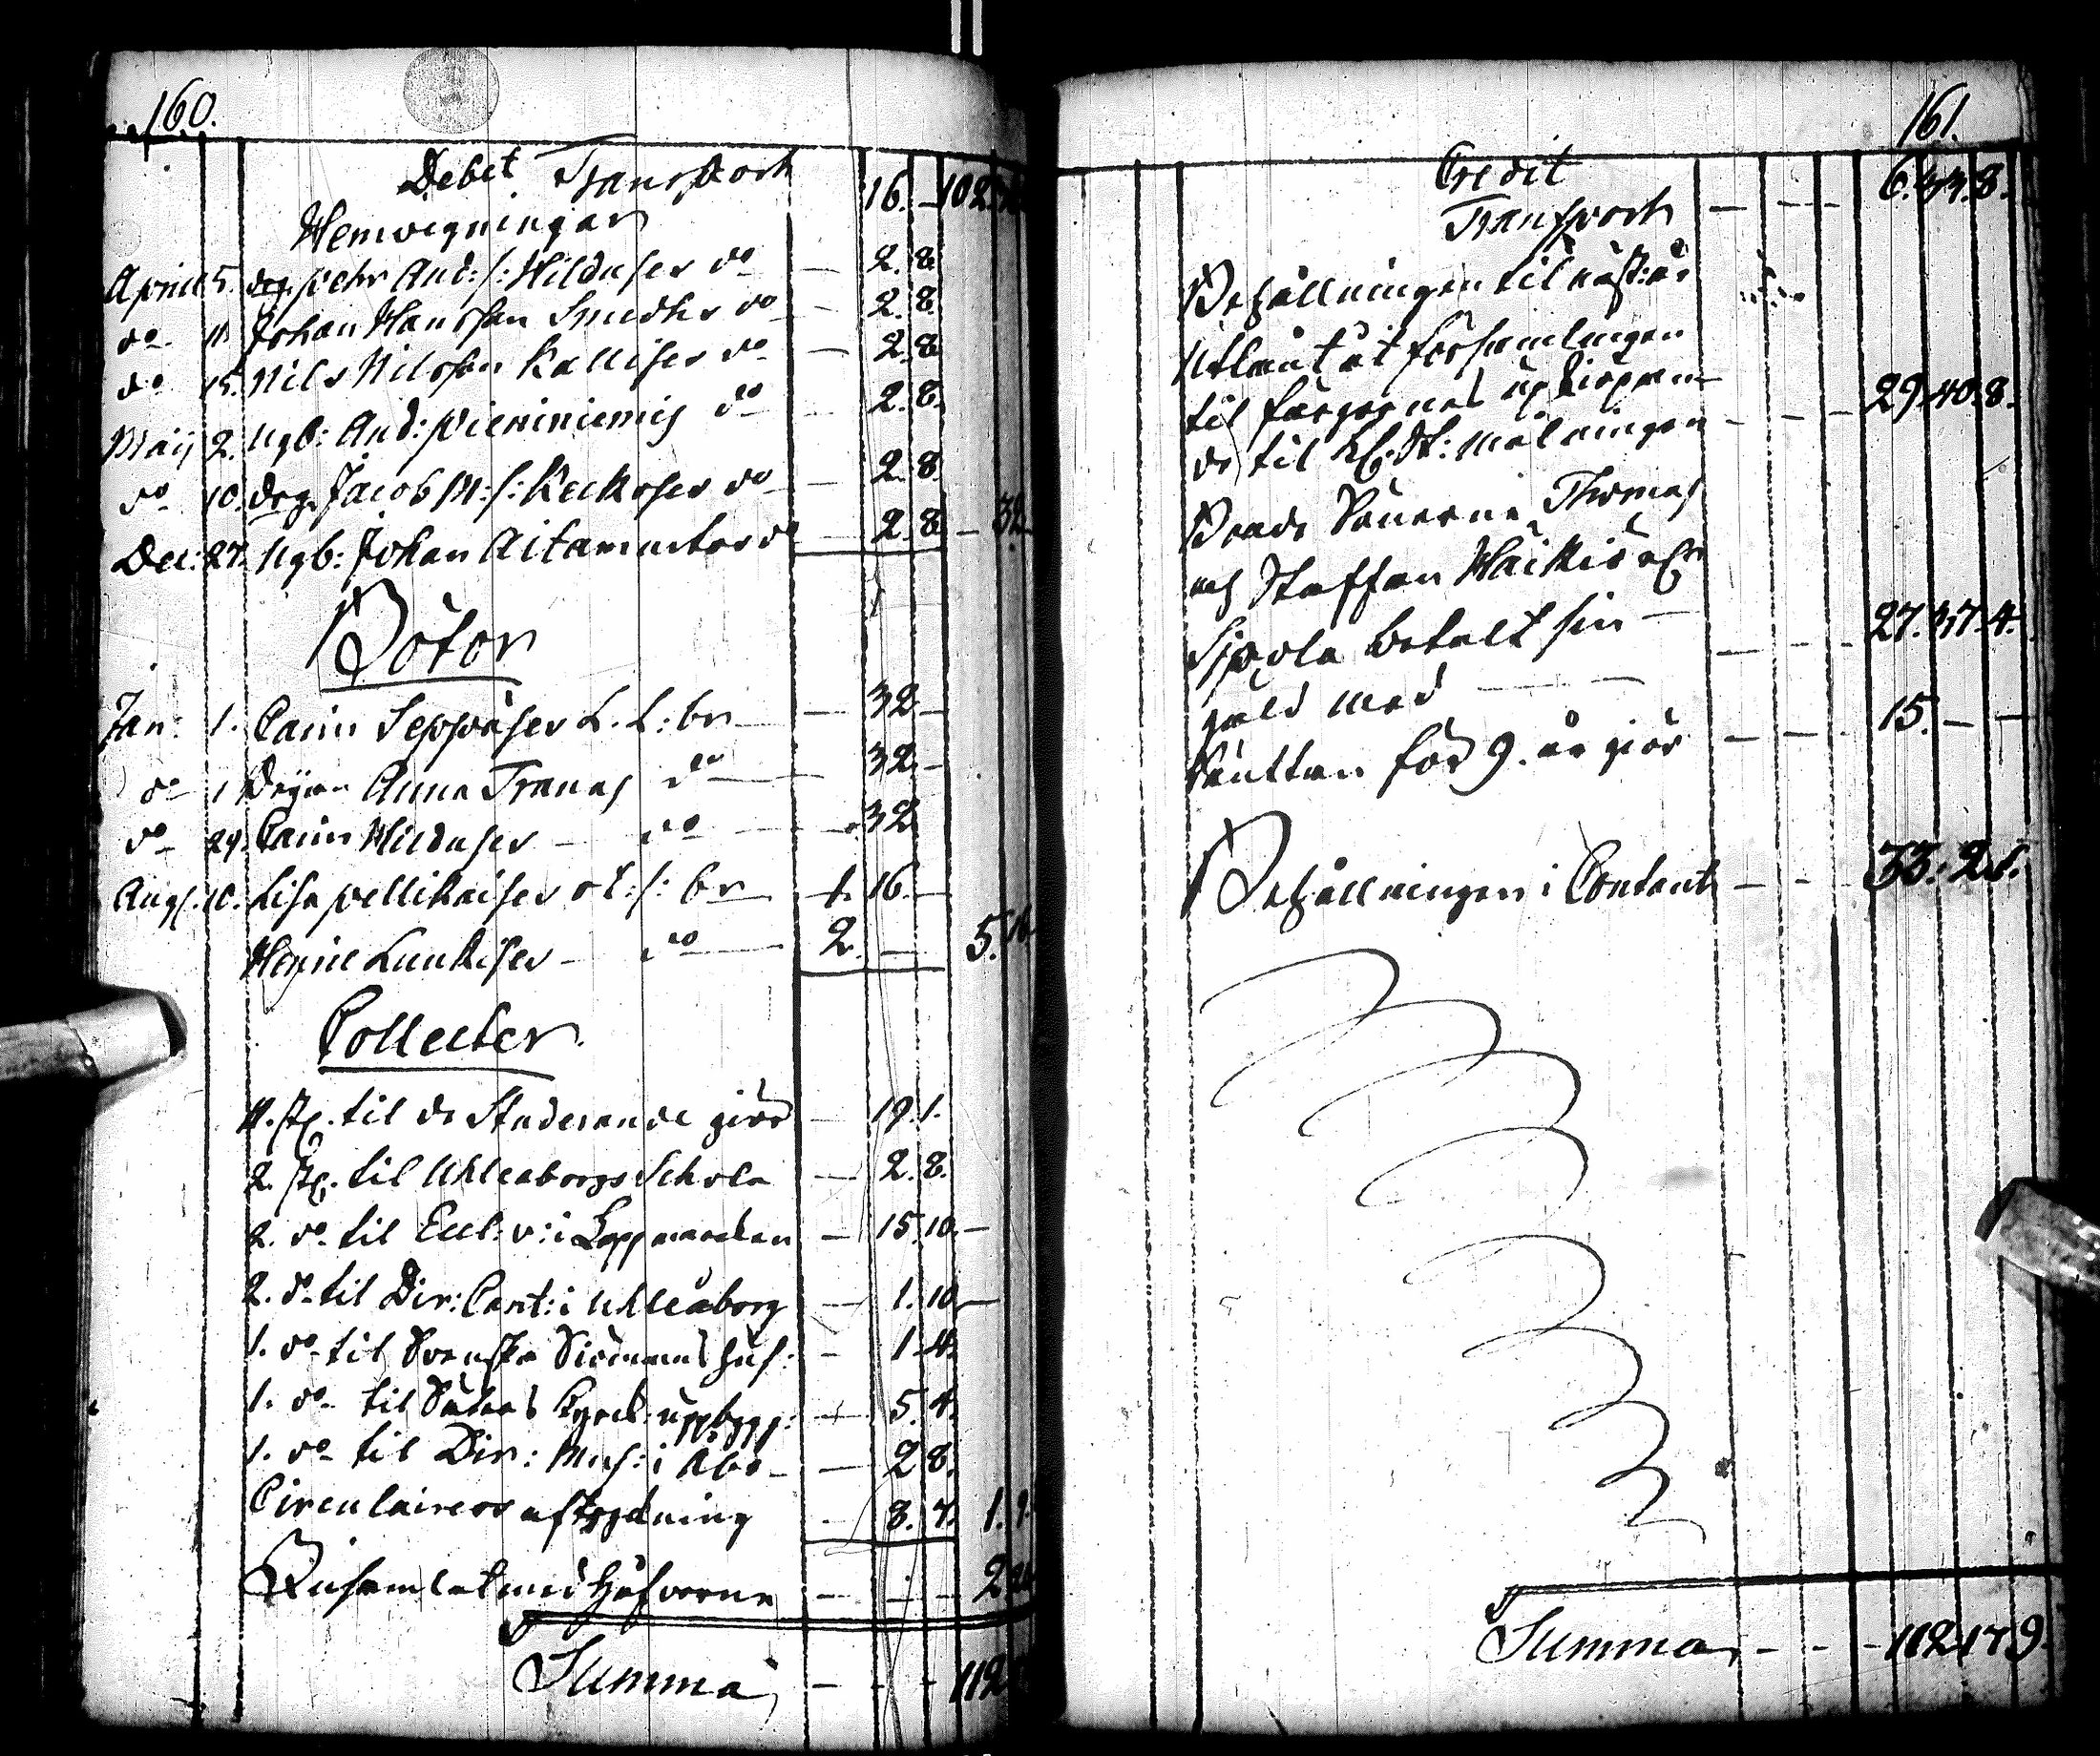 160.
Debet Transport 16. – 102.
Hemvigningar
April 5. drg. Pehr And:s: Hilduses do – 2. 8.
do 11. Johan Hansson Smedhs do – 2. 8.
do 15. Nils Nilsson Kallises do – 2. 8.
Maij 2. Ugb: And: Pieniniemis do – 2. 8.
do 10. drg. Jacob M:s: Keckoses do – 2. 8.
Dec: 27. Ugb: Johan Aitamurtos do – 2. 8. – 32
Böter
Jan: 1. Carin Seppäses L. L: br – 32 –
do 1. Pigan Anna Tranas do – 32 –
do 29. Carin Hilduses – do – 32
Aug. 10. Lisa Pellikaises ol:s: br – 1. 16. –
Henric Lunkises – do – 2. – 5. 16
Collecter
4. st. til de Studerande giör – 19. 1.
2. st. til Uhleaborgs Schola – 2. 8.
2. do til Eccl: v: i Lappmarcken – 15. 10. –
2. do til Dir: Cant: i Uhleåborg – 1. 10. –
1. do til Svenska Siömans hus: – 1. 4.
1. do til Kyrck: uppbygg: – 5. 4.
1. do til Dir: Mus: i Åbo – 2 8.
Circulairers – 8. 7. 1. 9.
Ricsamlat med Håfvarne – – – 2
Summa – – – 112
161.
Credit
Transport – – – 6. 33. 8.
Behållningen til näst: år
Utlånt åt församlingen
til färgornes upkiöpan-
de til K: st: målningen – – – 29. 40. 8.
Bonde Sönerne Thomas
och Staffan Häikiö
Sipola betalt sin –
giäld med – – – 27. 37. 4.
för 9. år giör – – – 15. – –
Behållningen i Contant – – – 33: 2
Summa – – – 112 17 9